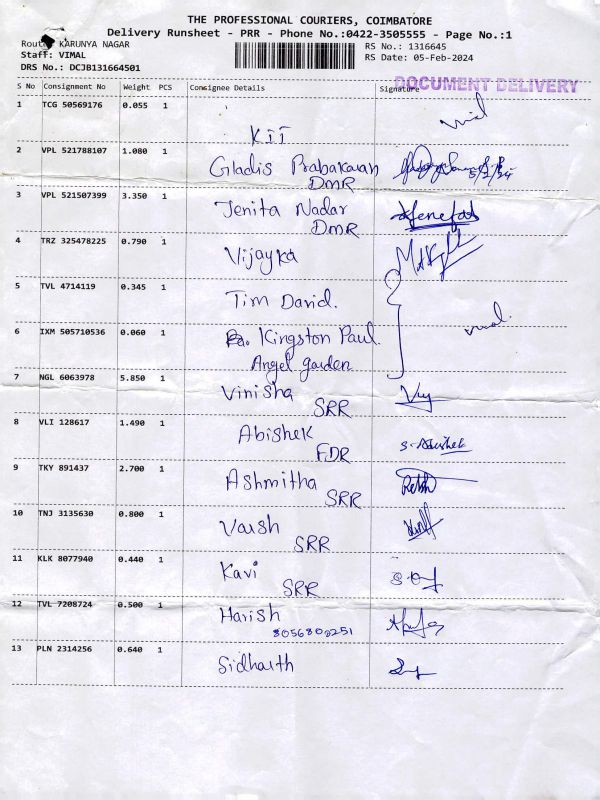 THE PROFESSIONAL COURIERS, COIMBATORE
Delivery Runsheet - PRR - Phone No.:0422-3505555 - Page No.:1
Route: KARUNYA NAGAR
RS No.: 1316645
Staff: VIMAL
RS Date: 05-Feb-2024
DRS No.: DCJB131664501
DOCUMENT DELIVERY
S No Consignment No Weight PCS Consignee Details Signature
1 TCG 50569176 0.055 1
KII
2 VPL 521788107 1.080 1
Gladis Prabakaran
DMR
5/2/24
3 VPL 521507399 3.350 1
Jenita Nadar
DMR
4 TRZ 325478225 0.790 1
Vijayka
5 TVL 4714119 0.345 1
Tim David.
6 IXM 505710536 0.060 1
Kingston Paul.
Angel garden
7 NGL 6063978 5.850 1
Vinisha
SRR
8 VLI 128617 1.490 1
Abishek
FDR
S. Abishek
9 TKY 891437 2.700 1
Ashmitha
SRR
10 TNJ 3135630 0.800 1
Varsh
SRR
11 KLK 8077940 0.440 1
Kavi
SRR
12 TVL 7208724 0.500 1
Harish
8056800251
13 PLN 2314256 0.640 1
Sidharth